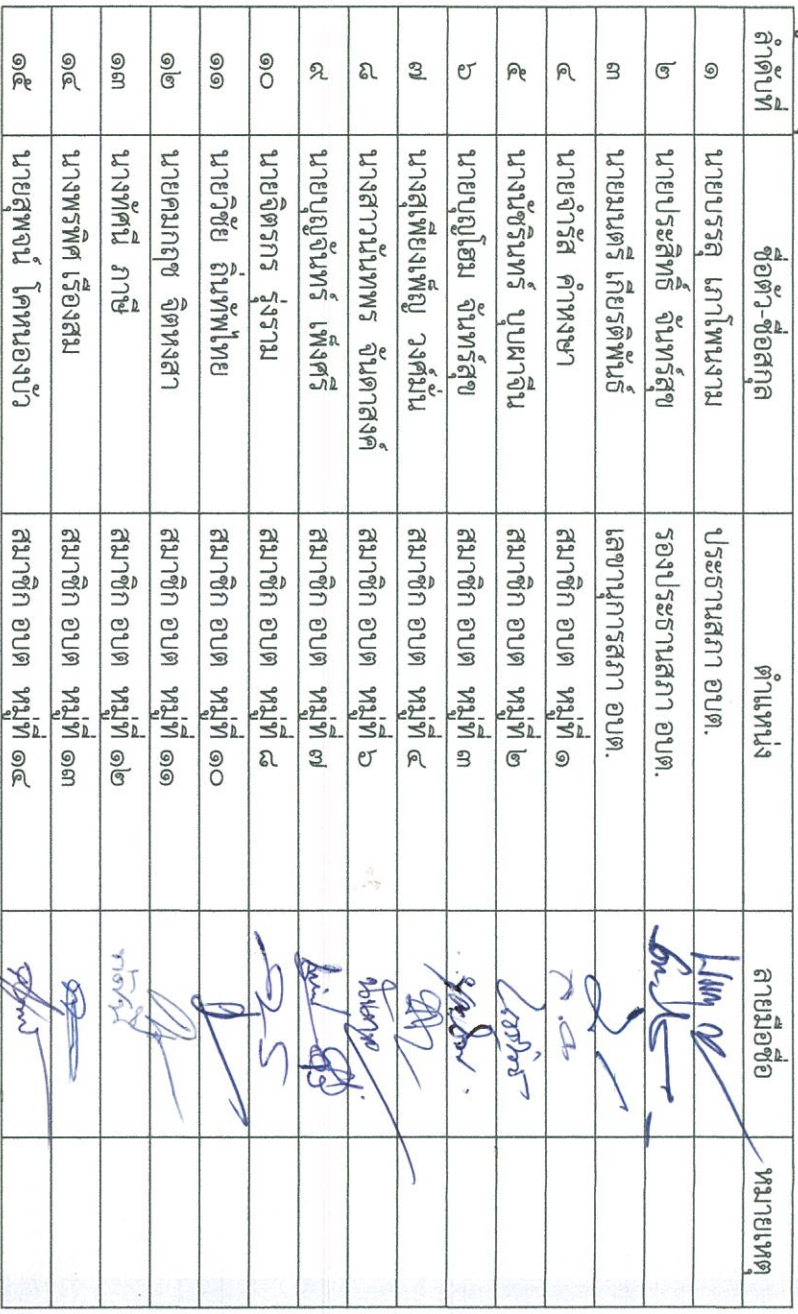 ลำดับที่ ชื่อตัว-ชื่อสกุล ตำแหน่ง ลายมือชื่อ หมายเหตุ
๑ นายบรรลุ เถาโพนงาม ประธานสภา อบต.
๒ นายประสิทธิ์ จันทร์สุข รองประธานสภา อบต.
๓ นายมนตรี เกียรติพันธ์ เลขานุการสภา อบต.
๔ นายจำรัส คำหงษา สมาชิก อบต หมู่ที่ ๑
๕ นางนัชรินทร์ บุบผาจีน สมาชิก อบต หมู่ที่ ๒
๖ นายบุญโฮม จันทร์สุข สมาชิก อบต หมู่ที่ ๓
๗ นางสุเพียงเพ็ญ วงศ์มั่น สมาชิก อบต หมู่ที่ ๔
๘ นางสาวนันทพร จันดาสงค์ สมาชิก อบต หมู่ที่ ๖
๙ นายบุญจันทร์ เพ็งศรี สมาชิก อบต หมู่ที่ ๗
๑๐ นายจิตรกร รุ่งราม สมาชิก อบต หมู่ที่ ๘
๑๑ นายวิชัย ถิ่นทัพไทย สมาชิก อบต หมู่ที่ ๑๐
๑๒ นายคมกฤช จิตหงสา สมาชิก อบต หมู่ที่ ๑๑
๑๓ นางทัศนี ภาษี สมาชิก อบต หมู่ที่ ๑๒
๑๔ นางพรพิศ เรืองสม สมาชิก อบต หมู่ที่ ๑๓
๑๕ นายสุพจน์ โคหนองบัว สมาชิก อบต หมู่ที่ ๑๔